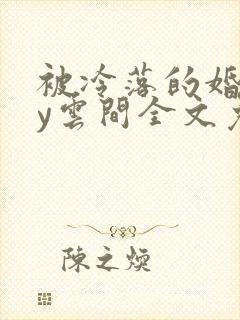 被冷落的婚
y雲間全文
陳之煥